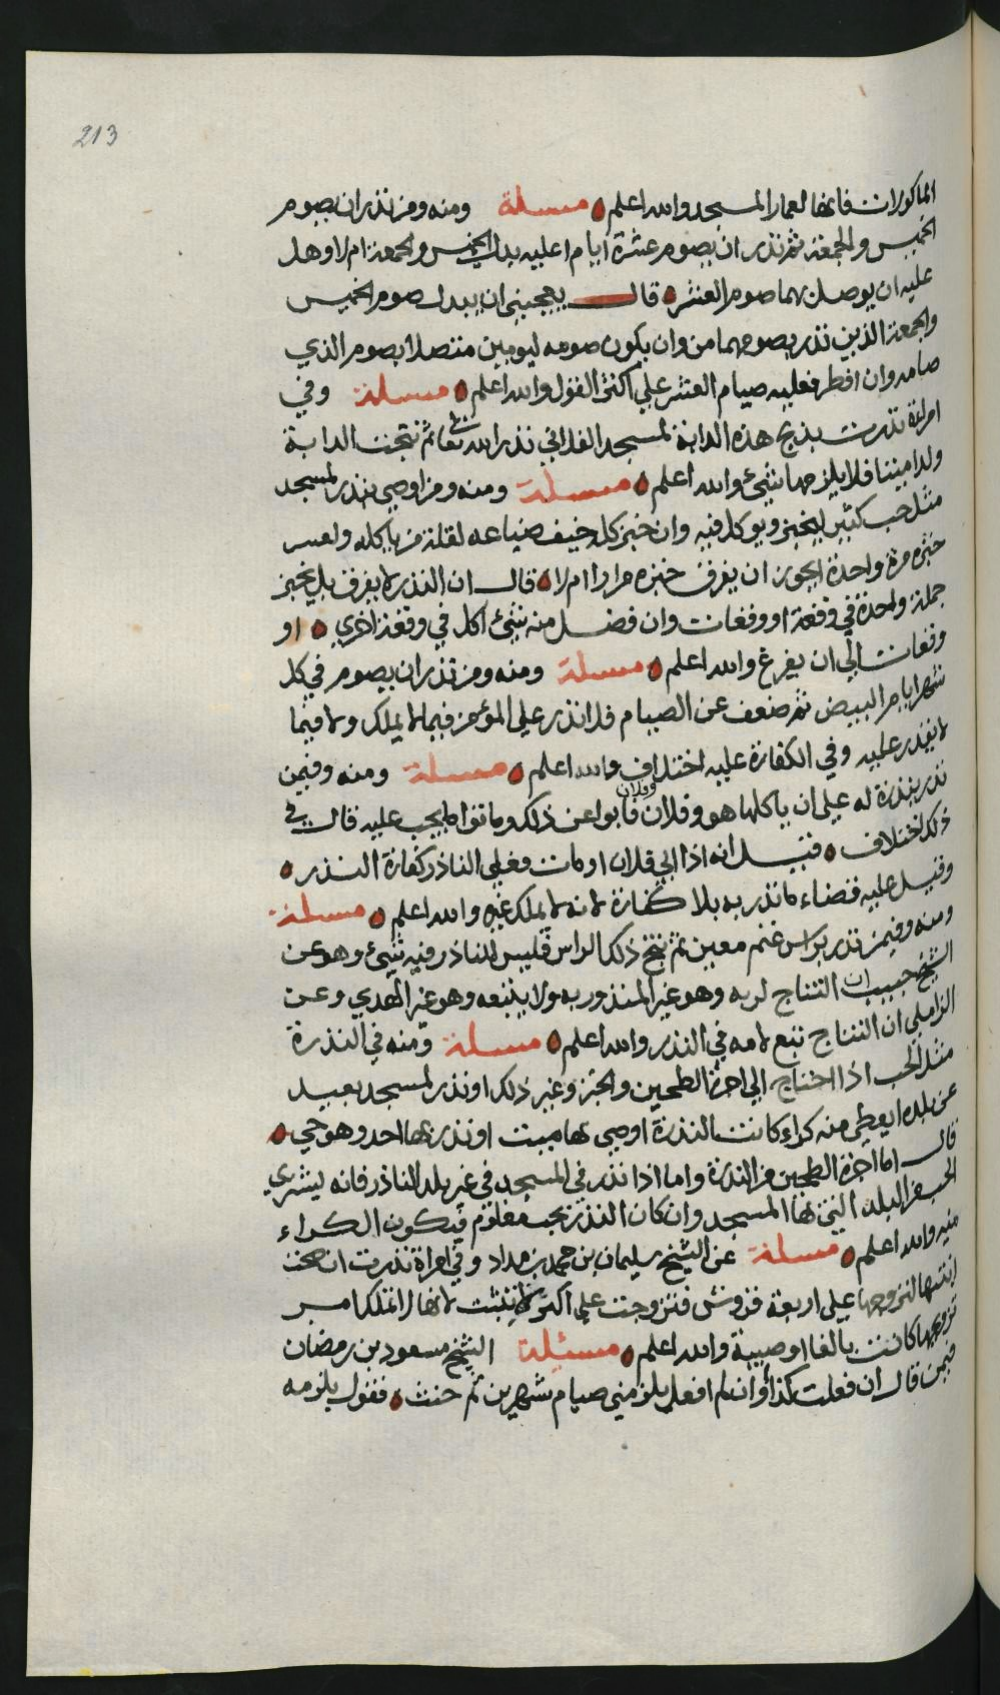 213
الماكولات فانها لعمار المسجد والله اعلم مسئلة ومنه ومن نذر ان يصوم
الخميس والجمعة ثم نذر ان يصوم عشرة ايام اعليه بدل الخميس والجمعة ام لا وهل
عليه ان يوصل بهما صوم العشر قال يعجبني ان يبدل صوم الخميس
والجمعة الذين نذر بصومهما من وان يكون صومه ليومين متصلا بصوم الذي
صامه وان افطر فعليه صيام العشر علي اكثر القول والله اعلم مسئلة وفي
امراة نذرت بذبح هذه الدابة لمسجد الفلاني نذر الله تعا ثم نتجت الدابة
ولدا ميتا فلا يلزمها شيئ والله اعلم مسئلة ومنه ومن اوصي بنذر لمسجد
مثل حب كثير ليخبز ويوكل فيه وان خبز كله خيف ضياعه لقلة من ياكله ولعسر
خبزه مرة واحدة ايجوز ان يفرق خبزه مرارا ام لا قال ان النذر لا يفرق بل يخبز
جملة واحدة في وقعة او وقعات وان فضل منه شيئ اكل في وقعة اخري او
وقعات الي ان يفرغ والله اعلم مسئلة ومنه ومن نذر ان يصوم في كل
شهر ايام البيض ثم ضعف عن الصيام فلا نذر علي المؤمن فيما لا يملك ولا فيما
لا يقدر عليه وفي الكفارة عليه اختلاف والله اعلم مسئلة ومنه وفيمن
نذر بنذرة له علي ان ياكلها هو وفلان وفلان فابوا عن ذلك وماتوا ما يجب عليه قال في
ذلك اختلاف فقيل انه اذا ابي فلان او مات فعلي الناذر كفارة النذر
وقيل عليه قضاء ما نذر به بلا كفارة لانه لا يملك غيره والله اعلم مسئلة
ومنه وفيمن نذر براس غنم معين ثم نتج ذلك الراس فليس للناذر فيه شيئ وهو عن
الشيخ حبيب ان النتاج لربه وهو غير المنذور به ولا يتبعه وهو غير الهدي وعن
الزاملي ان النتاج تبع لامه في النذر والله اعلم مسئلة ومنه في النذرة
مثل الحب اذا احتاج الي اجرة الطحين والخبز وغير ذلك او نذر لمسجد بعيد
عن بلده ايعطي منه كراء كانت النذرة اوصي بها ميت او نذر بها احد وهو حي
قال اما اجرة الطحين من النذرة واما اذا نذر في المسجد في غير بلد الناذر فانه ليشري
الحب من البلد التي بها المسجد وان كان النذر بحب معلوم فيكون الكراء
منه والله اعلم مسئلة عن الشيخ سليمان بن محمد بن مداد وفي امراة نذرت ان صحت
ابنتها لتزوجها علي اربعة قروش فتزوجت علي اكثر لا يثبت لانها لا تملك امر
تزويجها كانت بالغا او صبية والله اعلم مسئلة الشيخ مسعود بن رمضان
فيمن قال ان فعلت كذا او ان لم افعل يلزمني صيام شهرين ثم حنث فقول يلزمه